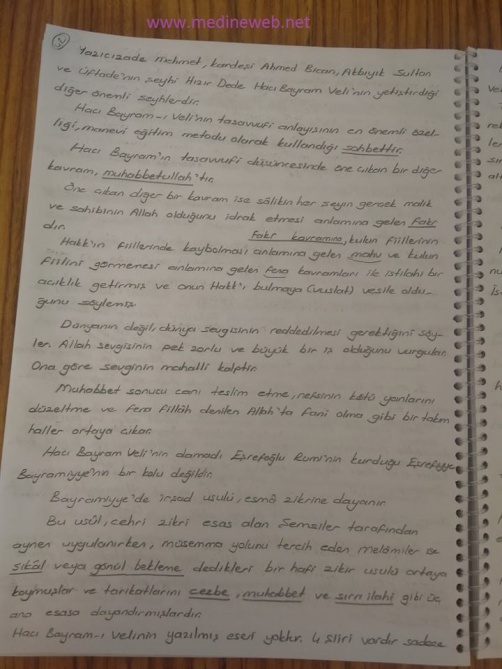 www.medineweb.net
Yazıcızade Mehmet, kardeşi Ahmed Bican, Akbıyık Sultan
ve Üftade'nin şeyhi Hızır Dede Hacı Bayram Veli'nin yetiştirdiği
diğer önemli şeyhlerdir.
Hacı Bayram-ı Veli'nin tasavvufi anlayışının en önemli özel-
liği, manevi eğitim metodu olarak kullandığı sohbettir.
Hacı Bayram'ın tasavvufi düşüncesinde öne çıkan bir diğer
kavram, muhabbetullah'tır.
Öne çıkan diğer bir kavram ise sâlikin her şeyin gerçek malik
ve sahibinin Allah olduğunu idrak etmesi anlamına gelen fakr
dır. Fakr kavramına, kulun fiillerinin
Hakk'ın fiillerinde kaybolması anlamına gelen mahv ve kulun
fiilini görmemesi anlamına gelen fena kavramları ile ıstılahi bir
açıklık getirmiş ve onun Hakk'ı bulmaya (vuslat) vesile oldu-
ğunu söylemiş
Dünyanın değil, dünya sevgisinin reddedilmesi gerektiğini söy-
ler. Allah sevgisinin pek zorlu ve büyük bir iş olduğunu vurgular
Ona göre sevginin mahalli kalptir.
Muhabbet sonucu canı teslim etme, nefsinin kötü yanlarını
düzeltme ve fena fillâh denilen Allah'ta fani olma gibi bir takım
haller ortaya çıkar.
Hacı Bayram Veli'nin damadı Eşrefoğlu Rumi'nin kurduğu Eşrefiyye
Bayramiyye'nin bir kolu değildir.
Bayramiyye'de irşad usulü, esmâ zikrine dayanır.
Bu usûl, cehri zikri esas alan Şemsiler tarafından
aynen uygulanırken, müsemma yolunu tercih eden Melâmiler ise
şikâl veya gönül bekleme dedikleri bir hafi zikir usulü ortaya
koymuşlar ve tarikatlarını cezbe, muhabbet ve sırrı ilahi gibi üç
ana esasa dayandırmışlardır.
Hacı Bayram-ı Velinin yazılmış eseri yoktur. 4 şiiri vardır sadece